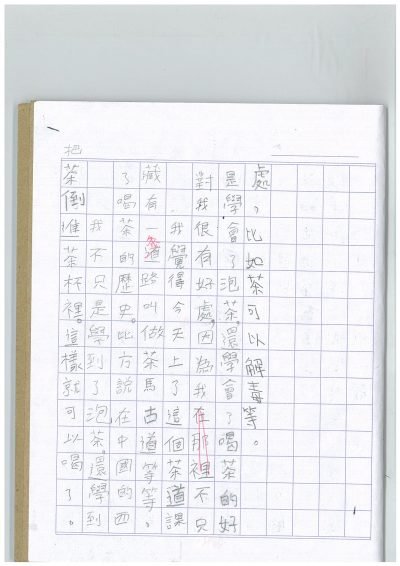 把
茶倒進茶杯裡。這樣就可以喝了。
我不只是學到了泡茶，還學到
了喝茶的歷史。比方說，在中國的西
藏有一道路叫做茶馬古道等等。
我覺得今天上了這個茶道課
對我很有好處，因為我在那裡不只
是學會了泡茶，還學會了喝茶的好
處，比如茶可以解毒等。